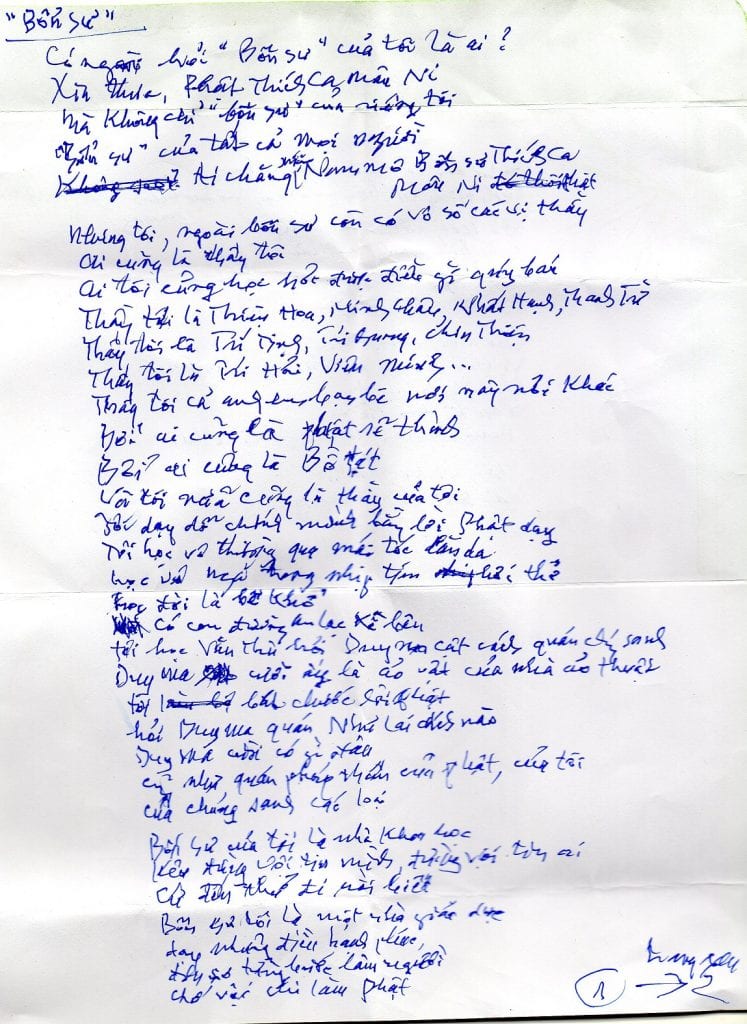 "Bổn sư"
Có người hỏi "Bổn sư" của tôi là ai?
Xin thưa, Phật Thích Ca Mâu Ni
Mà không chỉ "bổn sư" của riêng tôi
"Bổn sư" của tất cả mọi người
Ai chẳng Nam mô Bổn sư Thích Ca
Mâu Ni
Nhưng tôi, ngoài bổn sư còn có vô số các vị thầy
Ai cũng là thầy tôi
Ai tôi cũng học hỏi được điều gì quý báu
Thầy tôi là Thiện Hoa, Minh Châu, Nhất Hạnh, Thanh Từ
Thầy tôi là Trí Tịnh, Trí Quang, Chơn Thiện
Thầy tôi là Trí Hải, Viên Minh...
Thầy tôi cả anh em bạn bè nơi này nơi khác
Bởi ai cũng là Phật sẽ thành
Bởi ai cũng là Bồ tát
Với tôi nữa cũng là thầy của tôi
Tôi dạy dỗ chính mình bằng lời Phật dạy
Tôi học vô thường qua mái tóc làn da
học vô ngã trong nhịp tim hơi thở
học đời là bể khổ
Có con đường an lạc kề bên
tôi học Văn Thù hỏi Duy Ma Cật cách quán chúng sanh
Duy Ma cười ấy là ảo vật của nhà ảo thuật
tôi bắt chước lời Phật
hỏi Duy Ma quán Như Lai cách nào
Duy Ma cười có gì đâu
cứ như quán pháp thân của Phật, của tôi
của chúng sanh các loại
Bổn sư của tôi là nhà khoa học
kêu đừng vội tin mình, đừng vội tin ai
Cứ đến thử đi rồi biết
Bổn sư tôi là một nhà giáo dục
dạy những điều hạnh phúc,
đến từ từng bước làm người
chớ vội chi làm Phật
1 → 2